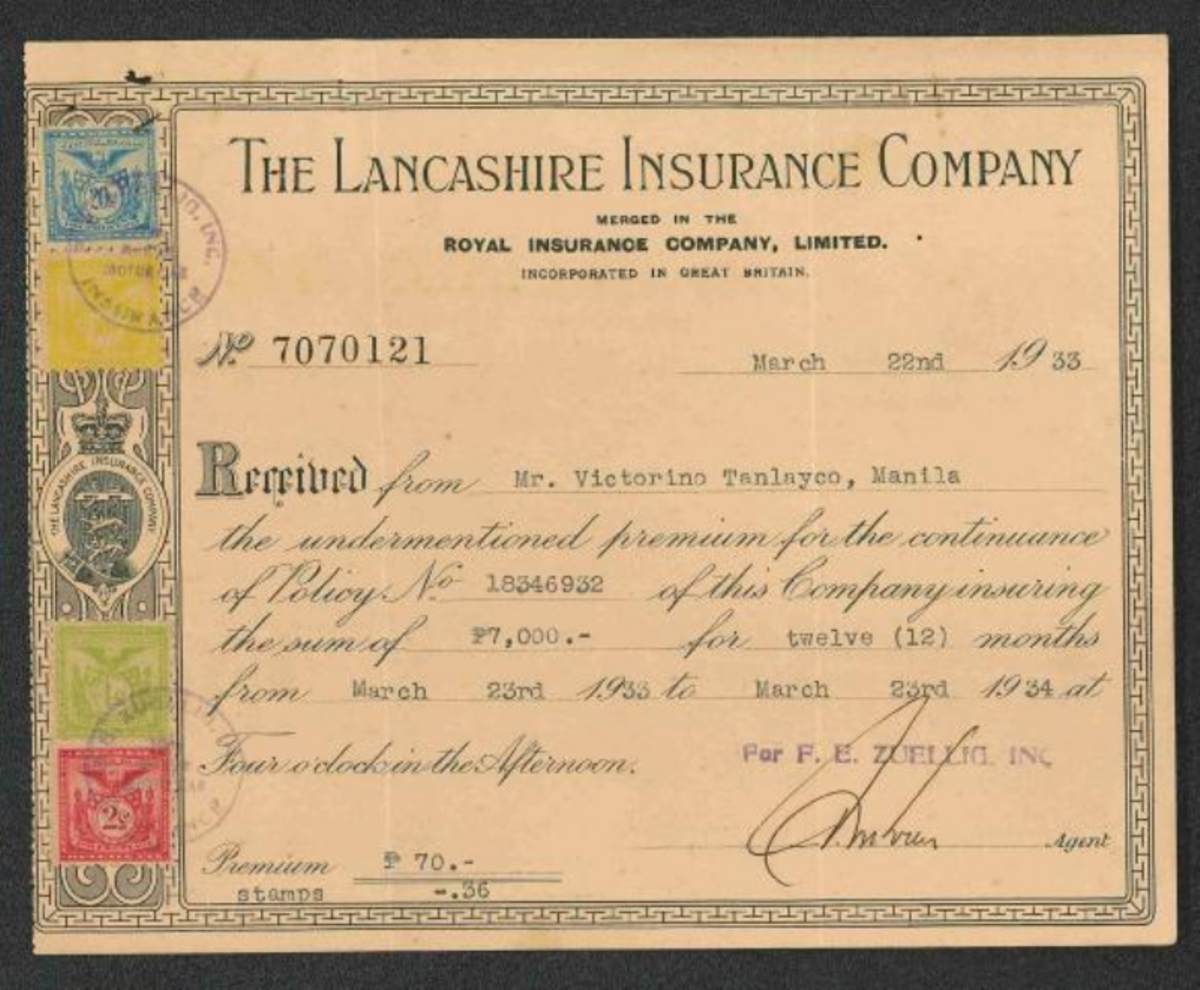 THE LANCASHIRE INSURANCE COMPANY
MERGED IN THE
ROYAL INSURANCE COMPANY, LIMITED.
INCORPORATED IN GREAT BRITAIN.
No. 7070121
March 22nd 1933
Received from Mr. Victorino Tanlayco, Manila
the undermentioned premium for the continuance
of Policy No. 18346932 of this Company insuring
the sum of ₱7,000.- for twelve (12) months
from March 23rd 1933 to March 23rd 1934 at
Four o'clock in the Afternoon.
For F. E. ZUELLIG, INC
Agent
Premium ₱ 70.-
stamps -.36
THE LANCASHIRE INSURANCE COMPANY
INC.
INSURANCE
20
2c